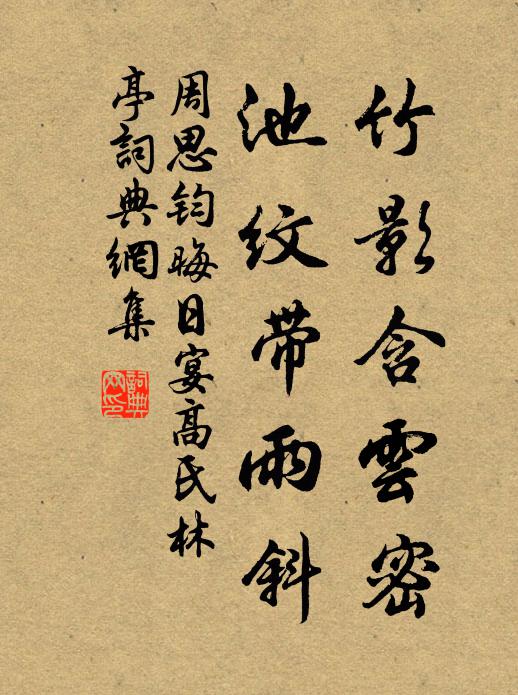 竹影含雲密
池紋帶雨斜
周思鈞晦日宴高氏林
亭詞典網集
詞典
网印